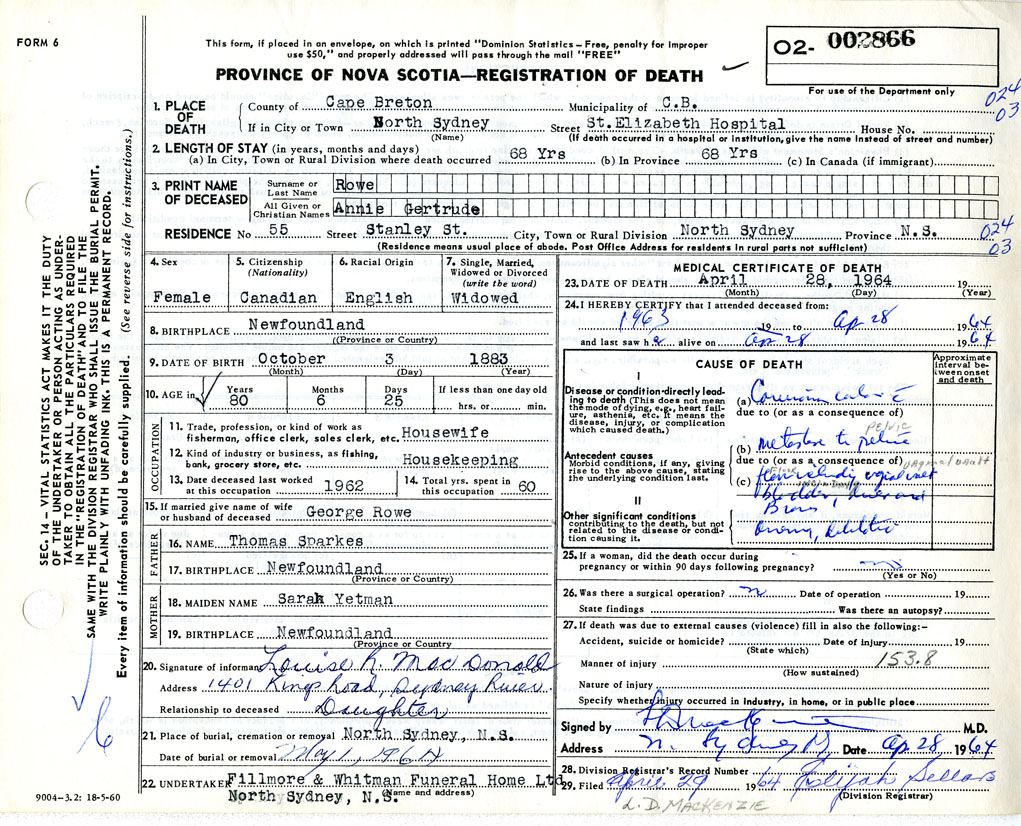 FORM 6
This form, if placed in an envelope, on which is printed "Dominion Statistics – Free, penalty for improper
use $50," and properly addressed will pass through the mail "FREE"
PROVINCE OF NOVA SCOTIA—REGISTRATION OF DEATH
02- 002866
For use of the Department only
024
03
1. PLACE OF DEATH
County of Cape Breton Municipality of C.B.
If in City or Town North Sydney Street St.Elizabeth Hospital House No.
(Name) (If death occurred in a hospital or institution, give the name instead of street and number)
2. LENGTH OF STAY (in years, months and days)
(a) In City, Town or Rural Division where death occurred 68 Yrs (b) In Province 68 Yrs (c) In Canada (if immigrant)
3. PRINT NAME OF DECEASED
Surname or Last Name Rowe
All Given or Christian Names Annie Gertrude
RESIDENCE No 55 Street Stanley St. City, Town or Rural Division North Sydney Province N.S.
024
03
(Residence means usual place of abode. Post Office Address for residents in rural parts not sufficient)
4. Sex
Female
5. Citizenship
(Nationality)
Canadian
6. Racial Origin
English
7. Single, Married,
Widowed or Divorced
(write the word)
Widowed
8. BIRTHPLACE Newfoundland
(Province or Country)
9. DATE OF BIRTH October 3 1883
(Month) (Day) (Year)
10. AGE in
Years Months Days If less than one day old
80 6 25 hrs. or min.
OCCUPATION
11. Trade, profession, or kind of work as
fisherman, office clerk, sales clerk, etc. Housewife
12. Kind of industry or business, as fishing,
bank, grocery store, etc. Housekeeping
13. Date deceased last worked
at this occupation 1962
14. Total yrs. spent in
this occupation 60
15. If married give name of wife
or husband of deceased George Rowe
FATHER
16. NAME Thomas Sparkes
17. BIRTHPLACE Newfoundland
(Province or Country)
MOTHER
18. MAIDEN NAME Sarah Yetman
19. BIRTHPLACE Newfoundland
(Province or Country
20. Signature of informant Louise R. MacDonald
Address 1401 Kings Road, Sydney River
Relationship to deceased Daughter
21. Place of burial, cremation or removal North Sydney, N.S.
Date of burial or removal May 1, 1964
22. UNDERTAKER Fillmore & Whitman Funeral Home Ltd
(Name and address)
North Sydney, N.S.
9004-3.2: 18-5-60
MEDICAL CERTIFICATE OF DEATH
23. DATE OF DEATH April 28, 1964 19
(Month) (Day) (Year)
24. I HEREBY CERTIFY that I attended deceased from:
1963 19 to Ap 28 1964
and last saw her alive on Ap 28 1964
CAUSE OF DEATH
Approximate
interval be-
tween onset
and death
I
Disease or condition directly lead-
ing to death (This does not mean
the mode of dying, e.g., heart fail-
ure, asthenia, etc. It means the
disease, injury, or complication
which caused death.)
(a)
due to (or as a consequence of)
PELVIC
(b) metastase to pelvic
Antecedent causes
Morbid conditions, if any, giving
rise to the above cause, stating
the underlying condition last.
due to (or as a consequence of)
(c)
bladder, liver and
II
Other significant conditions
contributing to the death, but not
related to the disease or condi-
tion causing it.
25. If a woman, did the death occur during
pregnancy or within 90 days following pregnancy? no
(Yes or No)
26. Was there a surgical operation? n Date of operation 19
State findings Was there an autopsy?
27. If death was due to external causes (violence) fill in also the following:–
Accident, suicide or homicide? Date of injury 19
(State which)
Manner of injury 153.8
(How sustained)
Nature of injury
Specify whether injury occurred in industry, in home, or in public place
Signed by M.D.
Address N. Sydney Date Ap 28 1964
28. Division Registrar's Record Number
29. Filed April 29 1964 Elijah Sellars
(Division Registrar)
L.D. MACKENZIE
SEC. 14 – VITAL STATISTICS ACT MAKES IT THE DUTY
OF THE UNDERTAKER OR PERSON ACTING AS UNDER-
TAKER TO OBTAIN ALL THE PARTICULARS REQUIRED
IN THE "REGISTRATION OF DEATH" AND TO FILE THE
SAME WITH THE DIVISION REGISTRAR WHO SHALL ISSUE THE BURIAL PERMIT.
WRITE PLAINLY WITH UNFADING INK. THIS IS A PERMANENT RECORD.
Every item of information should be carefully supplied. (See reverse side for instructions.)
6